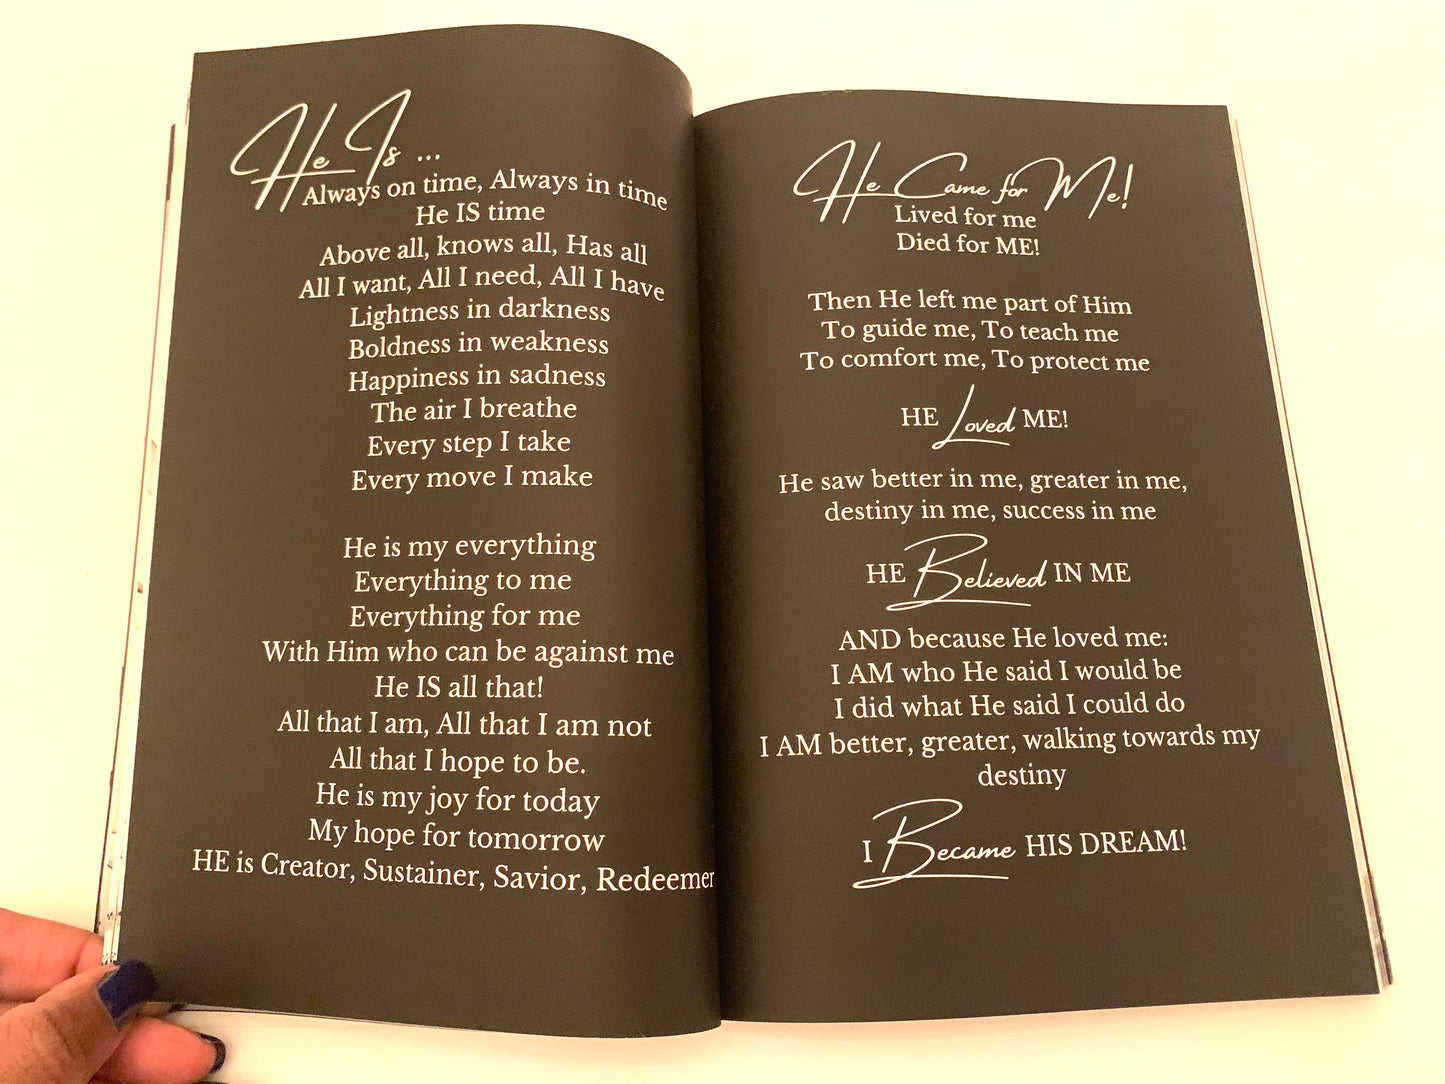 He Is ...
Always on time, Always in time
He IS time
Above all, knows all, Has all
All I want, All I need, All I have
Lightness in darkness
Boldness in weakness
Happiness in sadness
The air I breathe
Every step I take
Every move I make
He is my everything
Everything to me
Everything for me
With Him who can be against me
He IS all that!
All that I am, All that I am not
All that I hope to be.
He is my joy for today
My hope for tomorrow
HE is Creator, Sustainer, Savior, Redeemer
He Came for Me!
Lived for me
Died for ME!
Then He left me part of Him
To guide me, To teach me
To comfort me, To protect me
HE Loved ME!
He saw better in me, greater in me,
destiny in me, success in me
HE Believed IN ME
AND because He loved me:
I AM who He said I would be
I did what He said I could do
I AM better, greater, walking towards my
destiny
I Became HIS DREAM!